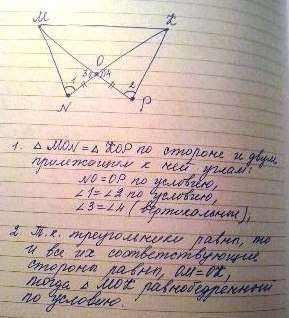 M
K
O
1
3
4
2
N
P
1. △MON = △KOP по стороне и двум
прилежащим к ней углам:
NO = OP по условию,
∠1 = ∠2 по условию,
∠3 = ∠4 (вертикальные),
2 Т.к. треугольники равны, то
и все их соответствующие
стороны равны, OM = OK,
тогда △MOK равнобедренный
по условию.